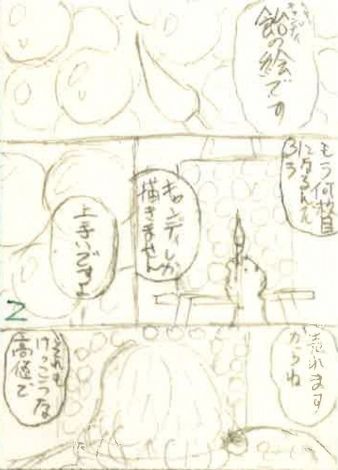 飴の絵です
キャンディ
もう何枚目
になるんで
しょう
キャンディしか
描きません
上手いですよ
2
売れます
からね
それも
けっこうな
高値で